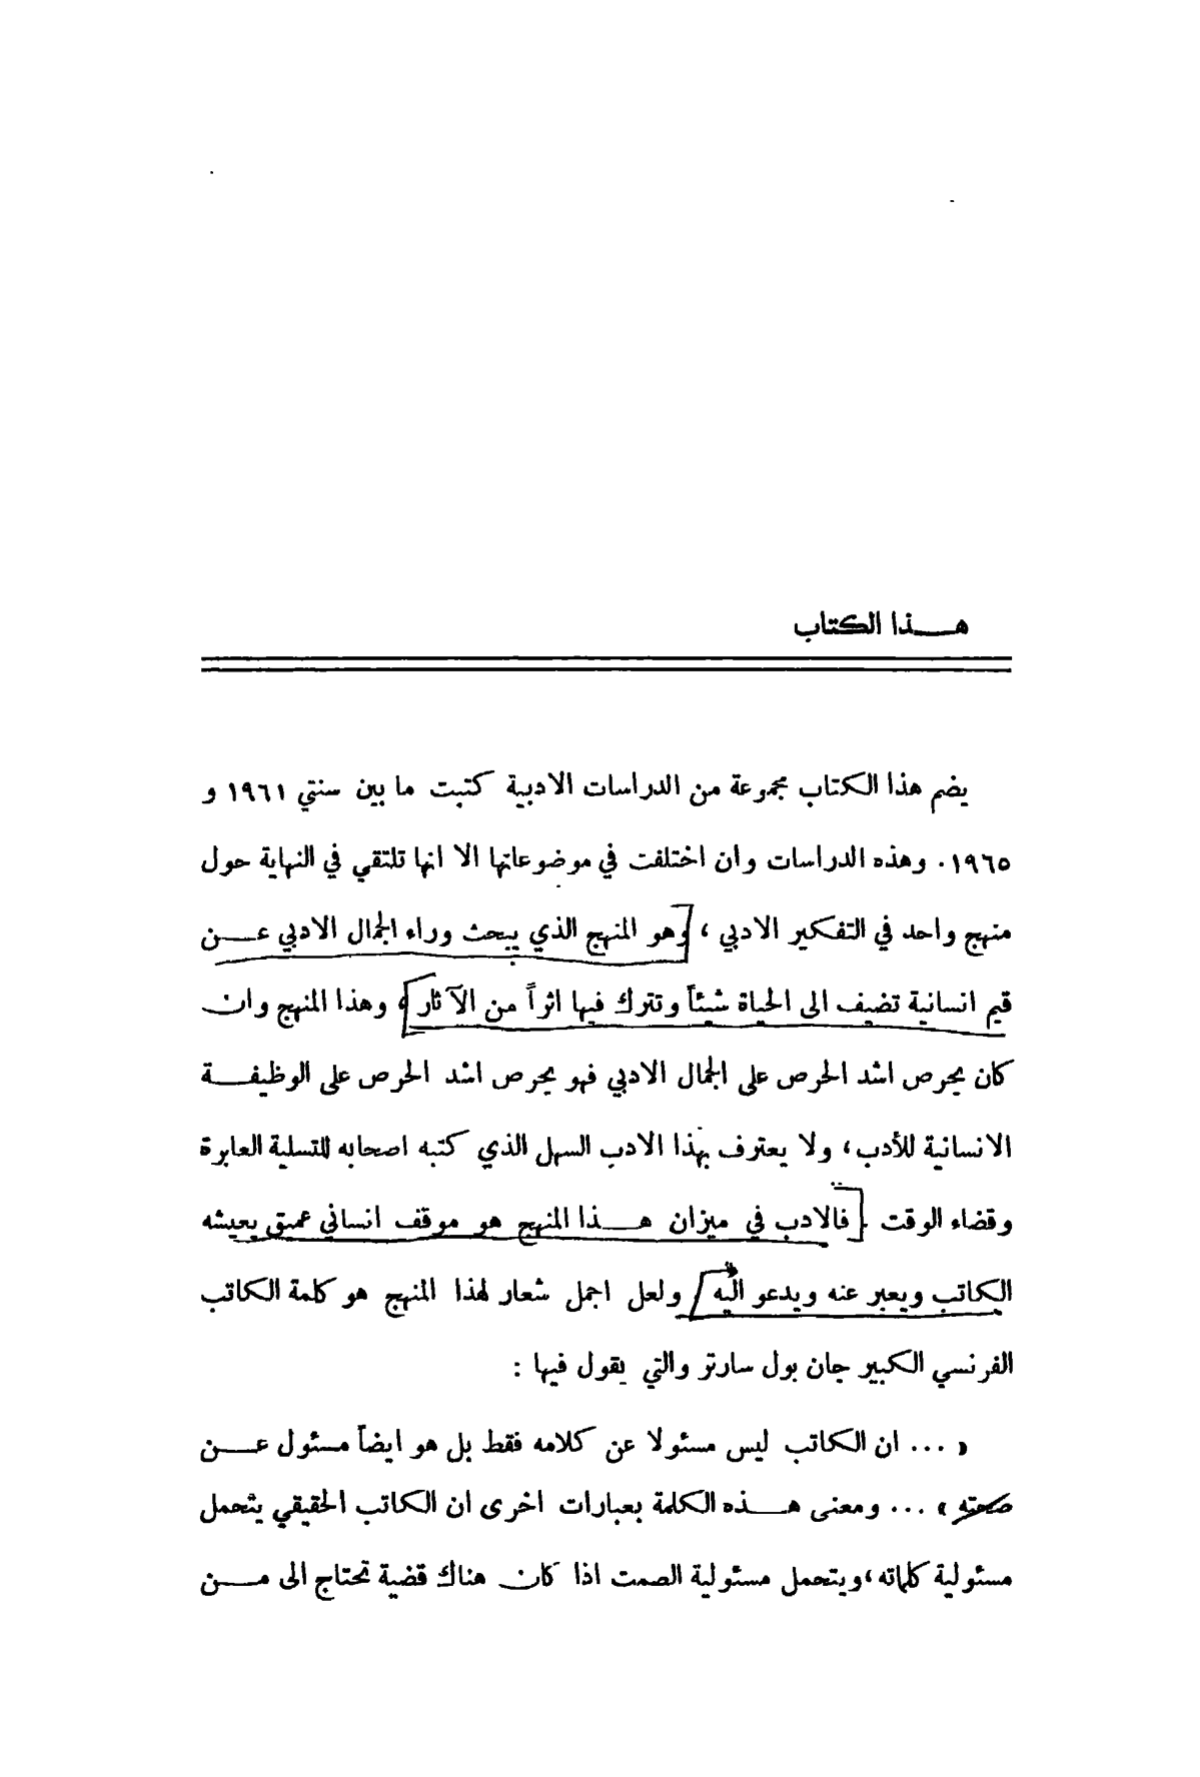 هـــذا الكتاب
يضم هذا الكتاب مجموعة من الدراسات الادبية كتبت ما بين سنتي ١٩٦١ و
١٩٦٥. وهذه الدراسات وان اختلفت في موضوعاتها الا انها تلتقي في النهاية حول
منهج واحد في التفكير الادبي ، وهو المنهج الذي يبحث وراء الجمال الادبي عـــن
قيم انسانية تضيف الى الحياة شيئاً وتترك فيها اثراً من الآثار ، وهذا المنهج وان
كان يحرص اشد الحرص على الجمال الادبي فهو يحرص اشد الحرص على الوظيفـــة
الانسانية للأدب، ولا يعترف بهذا الادب السهل الذي كتبه اصحابه للتسلية العابرة
وقضاء الوقت . فالادب في ميزان هـــذا المنهج هو موقف انساني عميق يعيشه
الكاتب ويعبر عنه ويدعو اليه ولعل اجمل شعار لهذا المنهج هو كلمة الكاتب
الفرنسي الكبير جان بول سارتر والتي يقول فيها :
« ... ان الكاتب ليس مسئولا عن كلامه فقط بل هو ايضاً مسئول عـــن
صمته » ... ومعنى هـــذه الكلمة بعبارات اخرى ان الكاتب الحقيقي يتحمل
مسئولية كلماته، ويتحمل مسئولية الصمت اذا كان هناك قضية تحتاج الى مـــن